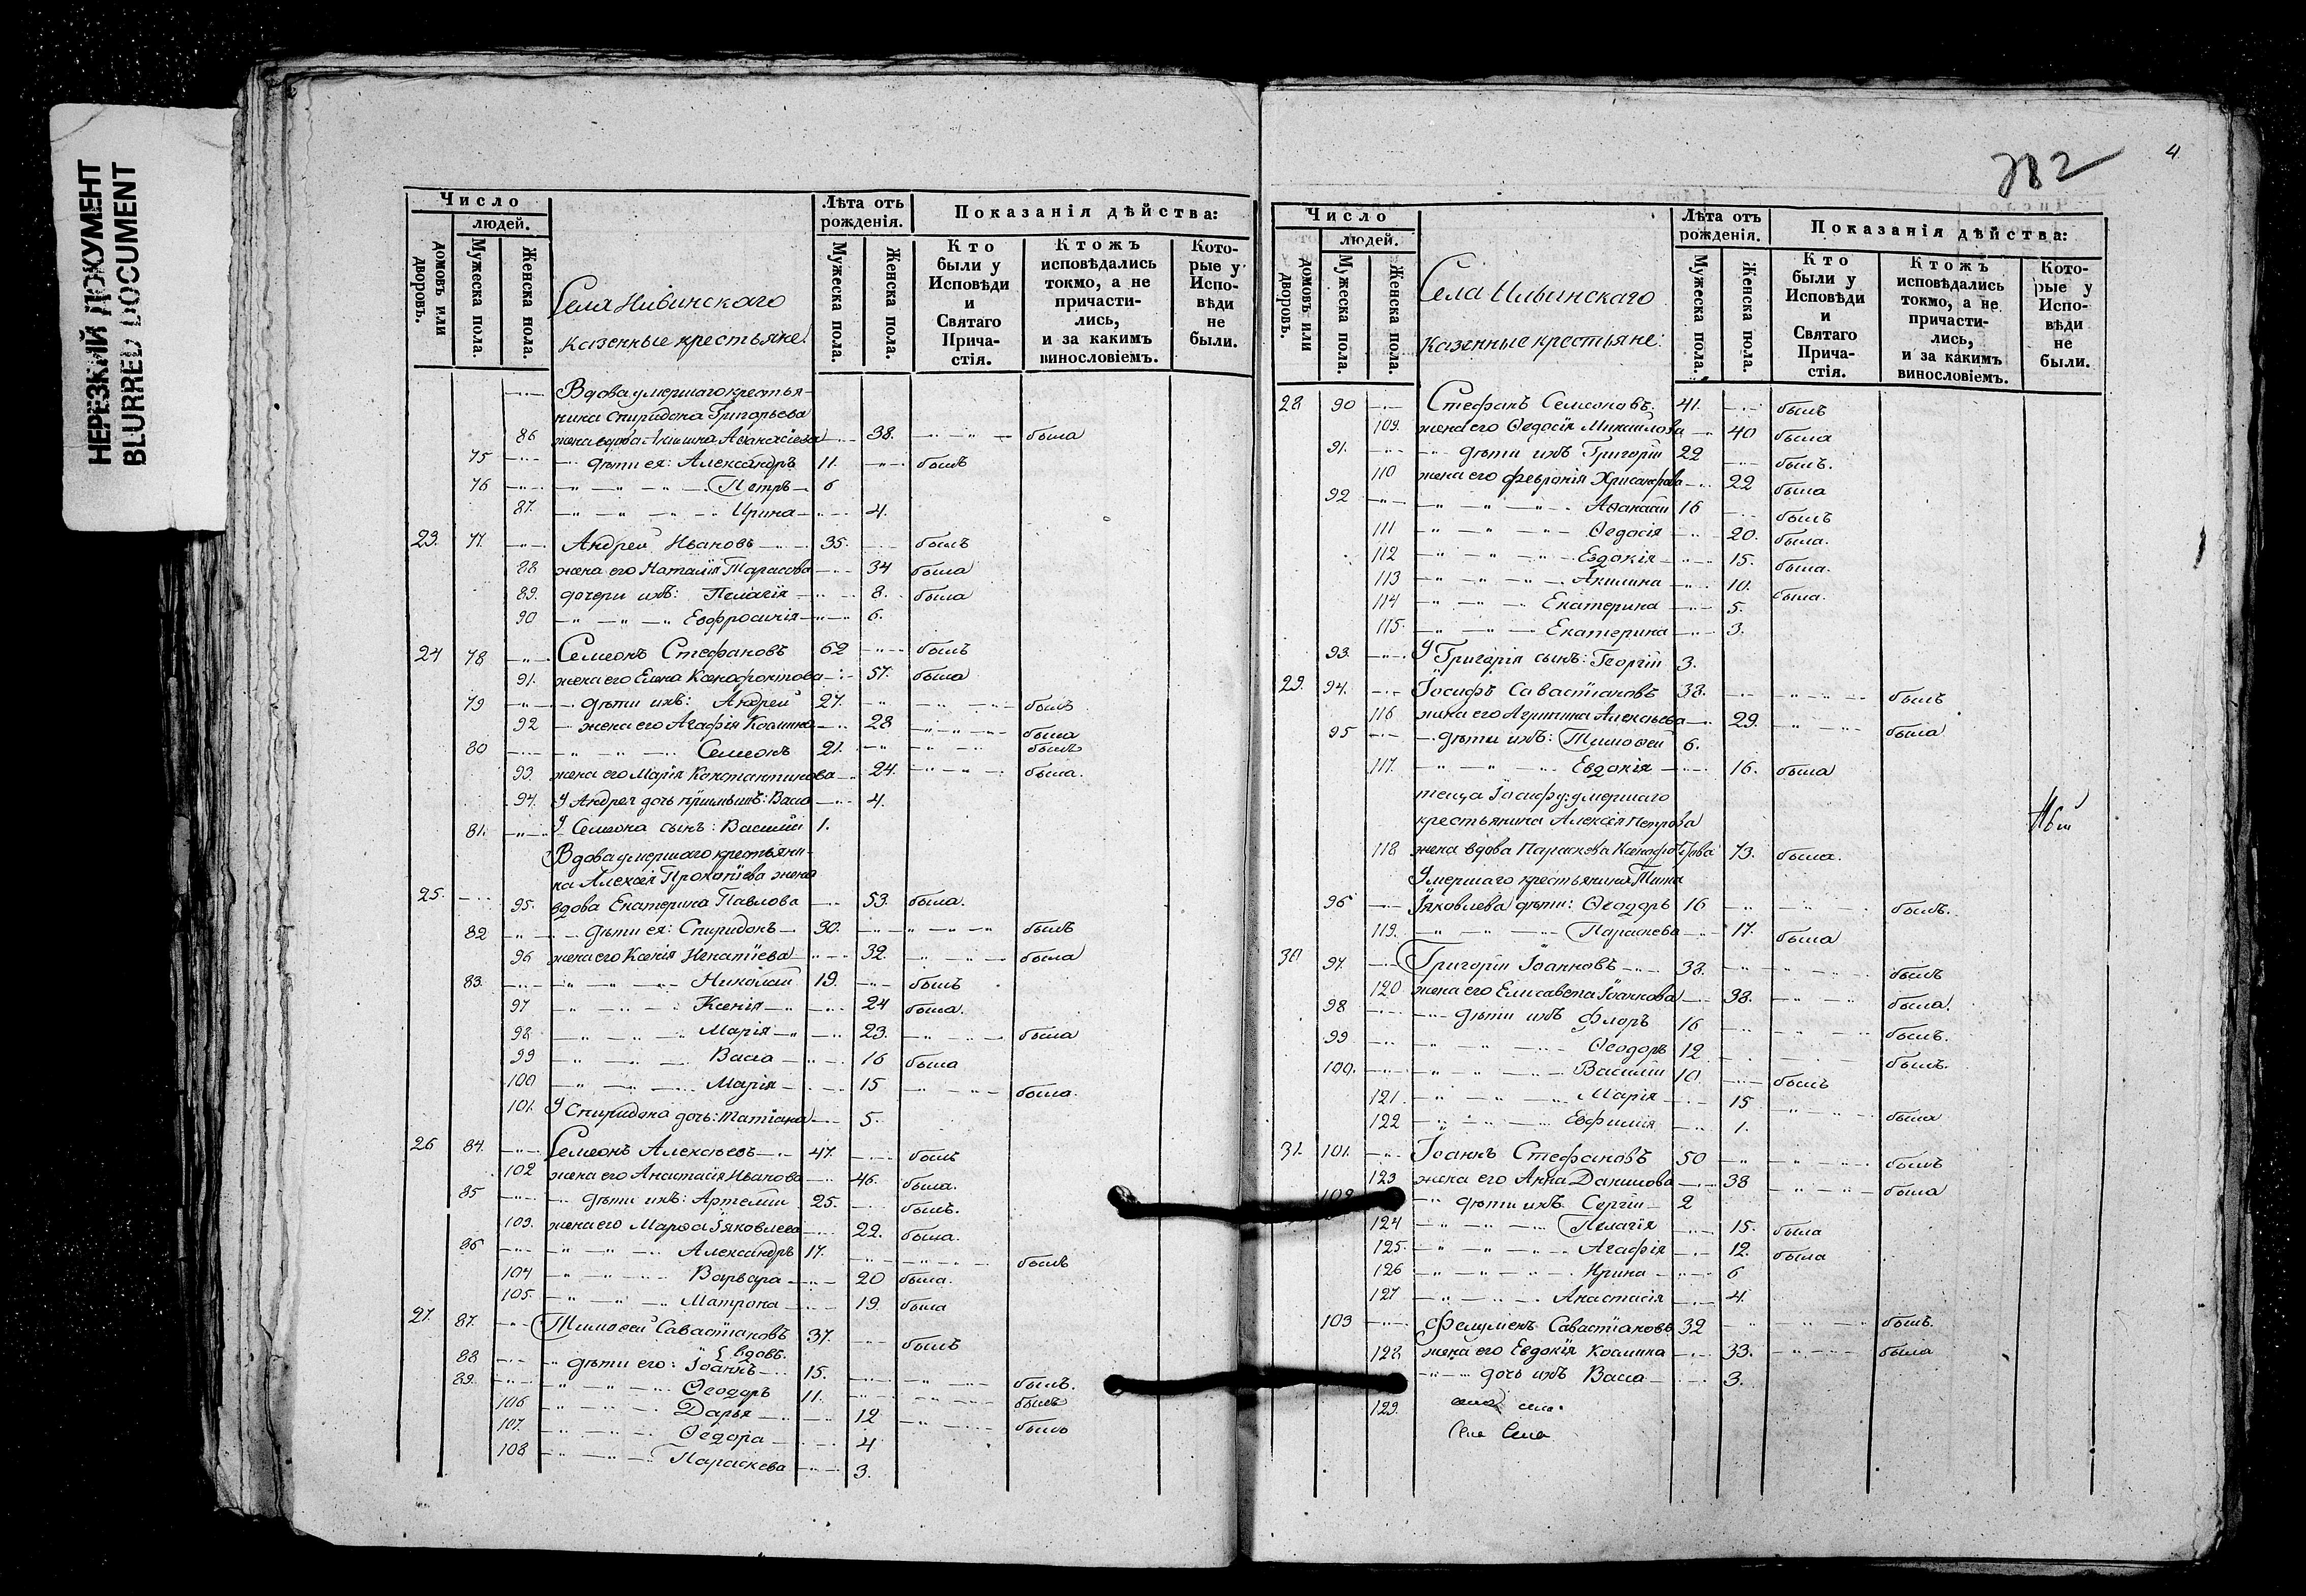 НЕРЕЗКИЙ ДОКУМЕНТ
BLURRED DOCUMENT
Число
людей.
домовъ или дворовъ.
Мужеска пола.
Женска пола.
Села
казенные крестьяне
Лѣта отъ рожденія.
Мужеска пола.
Женска пола.
Показанія дѣйства:
Кто были у Исповѣди и Святаго Прича-стія.
Ктожъ исповѣдались токмо, а не причасти-лись, и за какимъ винословіемъ.
Кото-рые у Испо-вѣди не были.
Вдова умершаго крестья-
нина Спиридона Григорьева
86 жена вдова Акилина Аѳанасіева 38. была
75 дѣти ея: Александръ 11. былъ
76 Петръ 6
87. Ирина 4.
23. 77. Андрей Ивановъ 35. былъ
88 жена его Наталія Тарасова 34 была
89. дочери ихъ: Пелагія 8. была
90 Евфросинія 6.
24 78 Семеонъ Стефановъ 62 былъ
91. жена его Елена Ксенофонтова 57. была
79 дѣти ихъ: Андрей 27. былъ
92 жена его Агафія Козмина 28 была
80 Семеонъ 21. былъ
93. жена его Марія Константинова 24. была.
94. У Андрея дочь Васса 4.
81. У Семеона сынъ: Василій 1.
Вдова умершаго крестьяни-
на Алексія Прокопіева жена
25. 95. вдова Екатерина Павлова 53. была.
82 дѣти ея: Спиридонъ 30. былъ
96 жена его Ксенія Игнатіева 32. была
83. Николай 19. былъ
97 Ксенія 24 была.
98 Марія 23. была
99 Васса 16 была
100 Марія 15 была.
101. У Спиридона дочь: Татіана 5.
26 84. Семеонъ Алексѣевъ 47. былъ
102 жена его Анастасія Иванова 46. была.
85 дѣти ихъ: Артемій 25. былъ.
103. жена его Марѳа Іяковлева 22. была.
86 Александръ 17. былъ
104 Варвара 20 была.
105. Матрона 19. была
27. 87. Тимоѳей Савастіановъ 37. былъ
вдовъ.
88 дѣти его: Іоаннъ 15. былъ.
89. Ѳеодоръ 11. былъ
106 Дарья 12 была
107. Ѳедора 4
108 Параскева 3.
282
4
Число
людей.
домовъ или дворовъ.
Мужеска пола.
Женска пола.
Села
казенные крестьяне:
Лѣта отъ рожденія.
Мужеска пола.
Женска пола.
Показанія дѣйства:
Кто были у Исповѣди и Святаго Прича-стія.
Ктожъ исповѣдались токмо, а не причасти-лись, и за какимъ винословіемъ.
Кото-рые у Испо-вѣди не были.
28 90 Стефанъ Семеоновъ. 41. былъ
109. жена его Ѳедосія Михайлова 40 была
91. дѣти ихъ Григорій 22 былъ.
110 жена его Февронія Хрисанфова 22 была
92 Аѳанасій 16 былъ
111 Ѳедосія 20. была.
112 Евдокія 15. была.
113 Акилина 10. была.
114 Екатерина 5.
115. Екатерина 3.
93. У Григорія сынъ: Георгій 3.
29. 94. Іосифъ Савастіановъ 38. былъ
116 жена его Агрипина Алексѣева 29. была
95 дѣти ихъ: Тимоѳей 6.
117. Евдокія 16. была
теща Іосифу: умершаго
крестьянина Алексія Петрова
118 жена вдова Параскева 73. была.
Умершаго крестьянина Тита
96 Іяковлева дѣти: Ѳеодоръ 16 былъ.
119. Параскева 17. была
30 97. Григорій Іоанновъ 38. былъ
120 жена его Елисавета Іоаннова 38. была.
98 дѣти ихъ Флоръ 16 былъ.
99 Ѳеодоръ 12 былъ.
100. Василій 10 былъ
121 Марія 15 была
122 Евфимія 1.
31. 101. Іоаннъ Стефановъ 50 былъ
123 жена его Анна Данилова 38 была
102 дѣти ихъ Сергій 2
124 Пелагія 15. была
125. Агафія 12. была
126 Ирина 6
127 Анастасія 4.
103 Филуменъ Савастіановъ 32 былъ.
128 жена его Евдокія Козмина 33. была
дочь ихъ Васса 3.
129.
Села